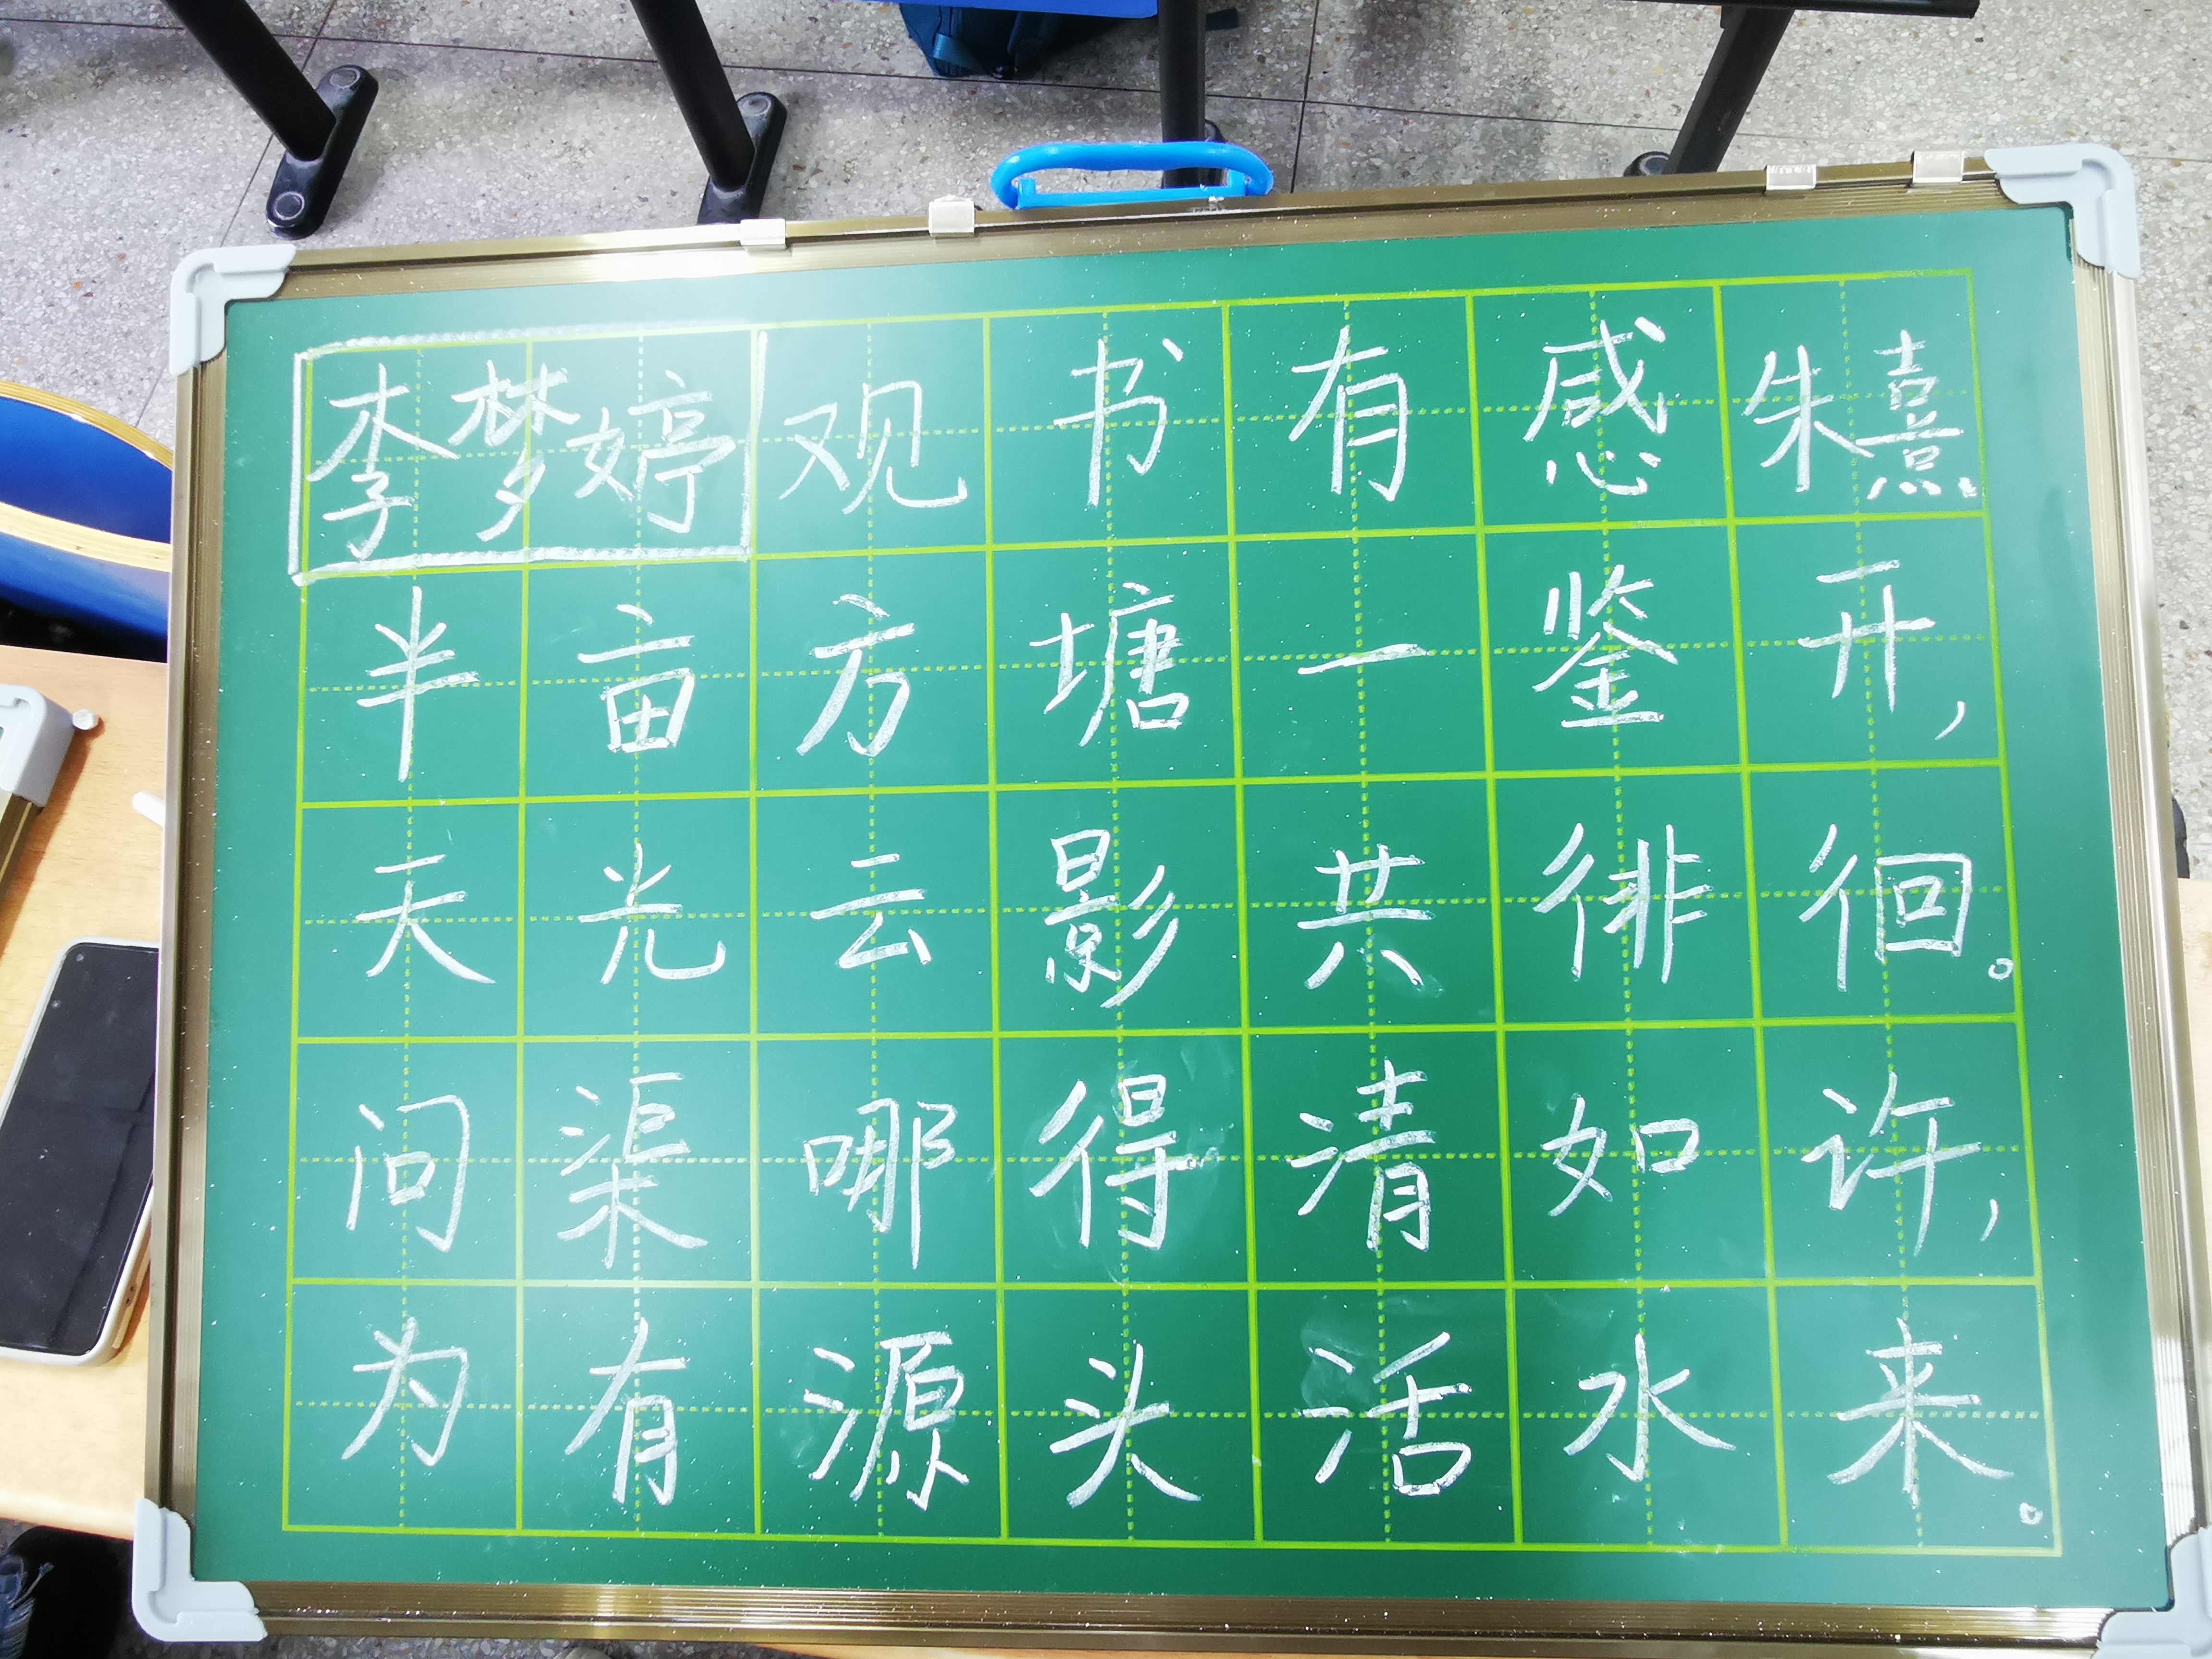 李梦婷 观书有感 朱熹
半亩方塘一鉴开，
天光云影共徘徊。
问渠哪得清如许，
为有源头活水来。